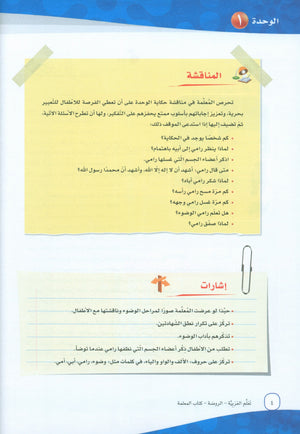 الوحدة ١
المناقشة
تحرص المُعلّمة في مناقشة حكاية الوحدة على أن تعطي الفرصة للأطفال للتعبير
بحرية، وتعزيز إجاباتهم بأسلوب ممتع يحفزهم على التفكير، ولها أن تطرح الأسئلة الآتية،
ثمّ تضيف إليها إذا استدعى الموقف ذلك:
• كم شخصًا يوجد في الحكاية؟
• لماذا ينظر رامي إلى أبيه باهتمام؟
• اذكر أعضاء الجسم التي غسلها رامي.
• متى قال رامي: أشهد أن لا إله إلا الله، وأشهد أنّ محمدًا رسول الله؟
• لماذا شكر رامي أباه؟
• كم مرّة مسح رامي رأسه؟
• كم مرّة غسل رامي وجهه؟
• هل تعلم رامي الوضوء؟
• لماذا صفّق رامي؟
إشارات
• حبّذا لو عرضت المُعلّمة صورًا لمراحل الوضوء وناقشتها مع الأطفال.
• تركّز على تكرار نطق الشهادتين.
• تذكرهم بآداب الوضوء.
• تطلب من الأطفال ذكر أعضاء الجسم التي نظفها رامي عندما توضأ.
• تركّز على حروف: الألف والواو والياء، في كلمات مثل: وضوء، رامي، أبي، أمي.
٤ تعلّم العَرَبِيَّة - الروضة - كتاب المعلمة